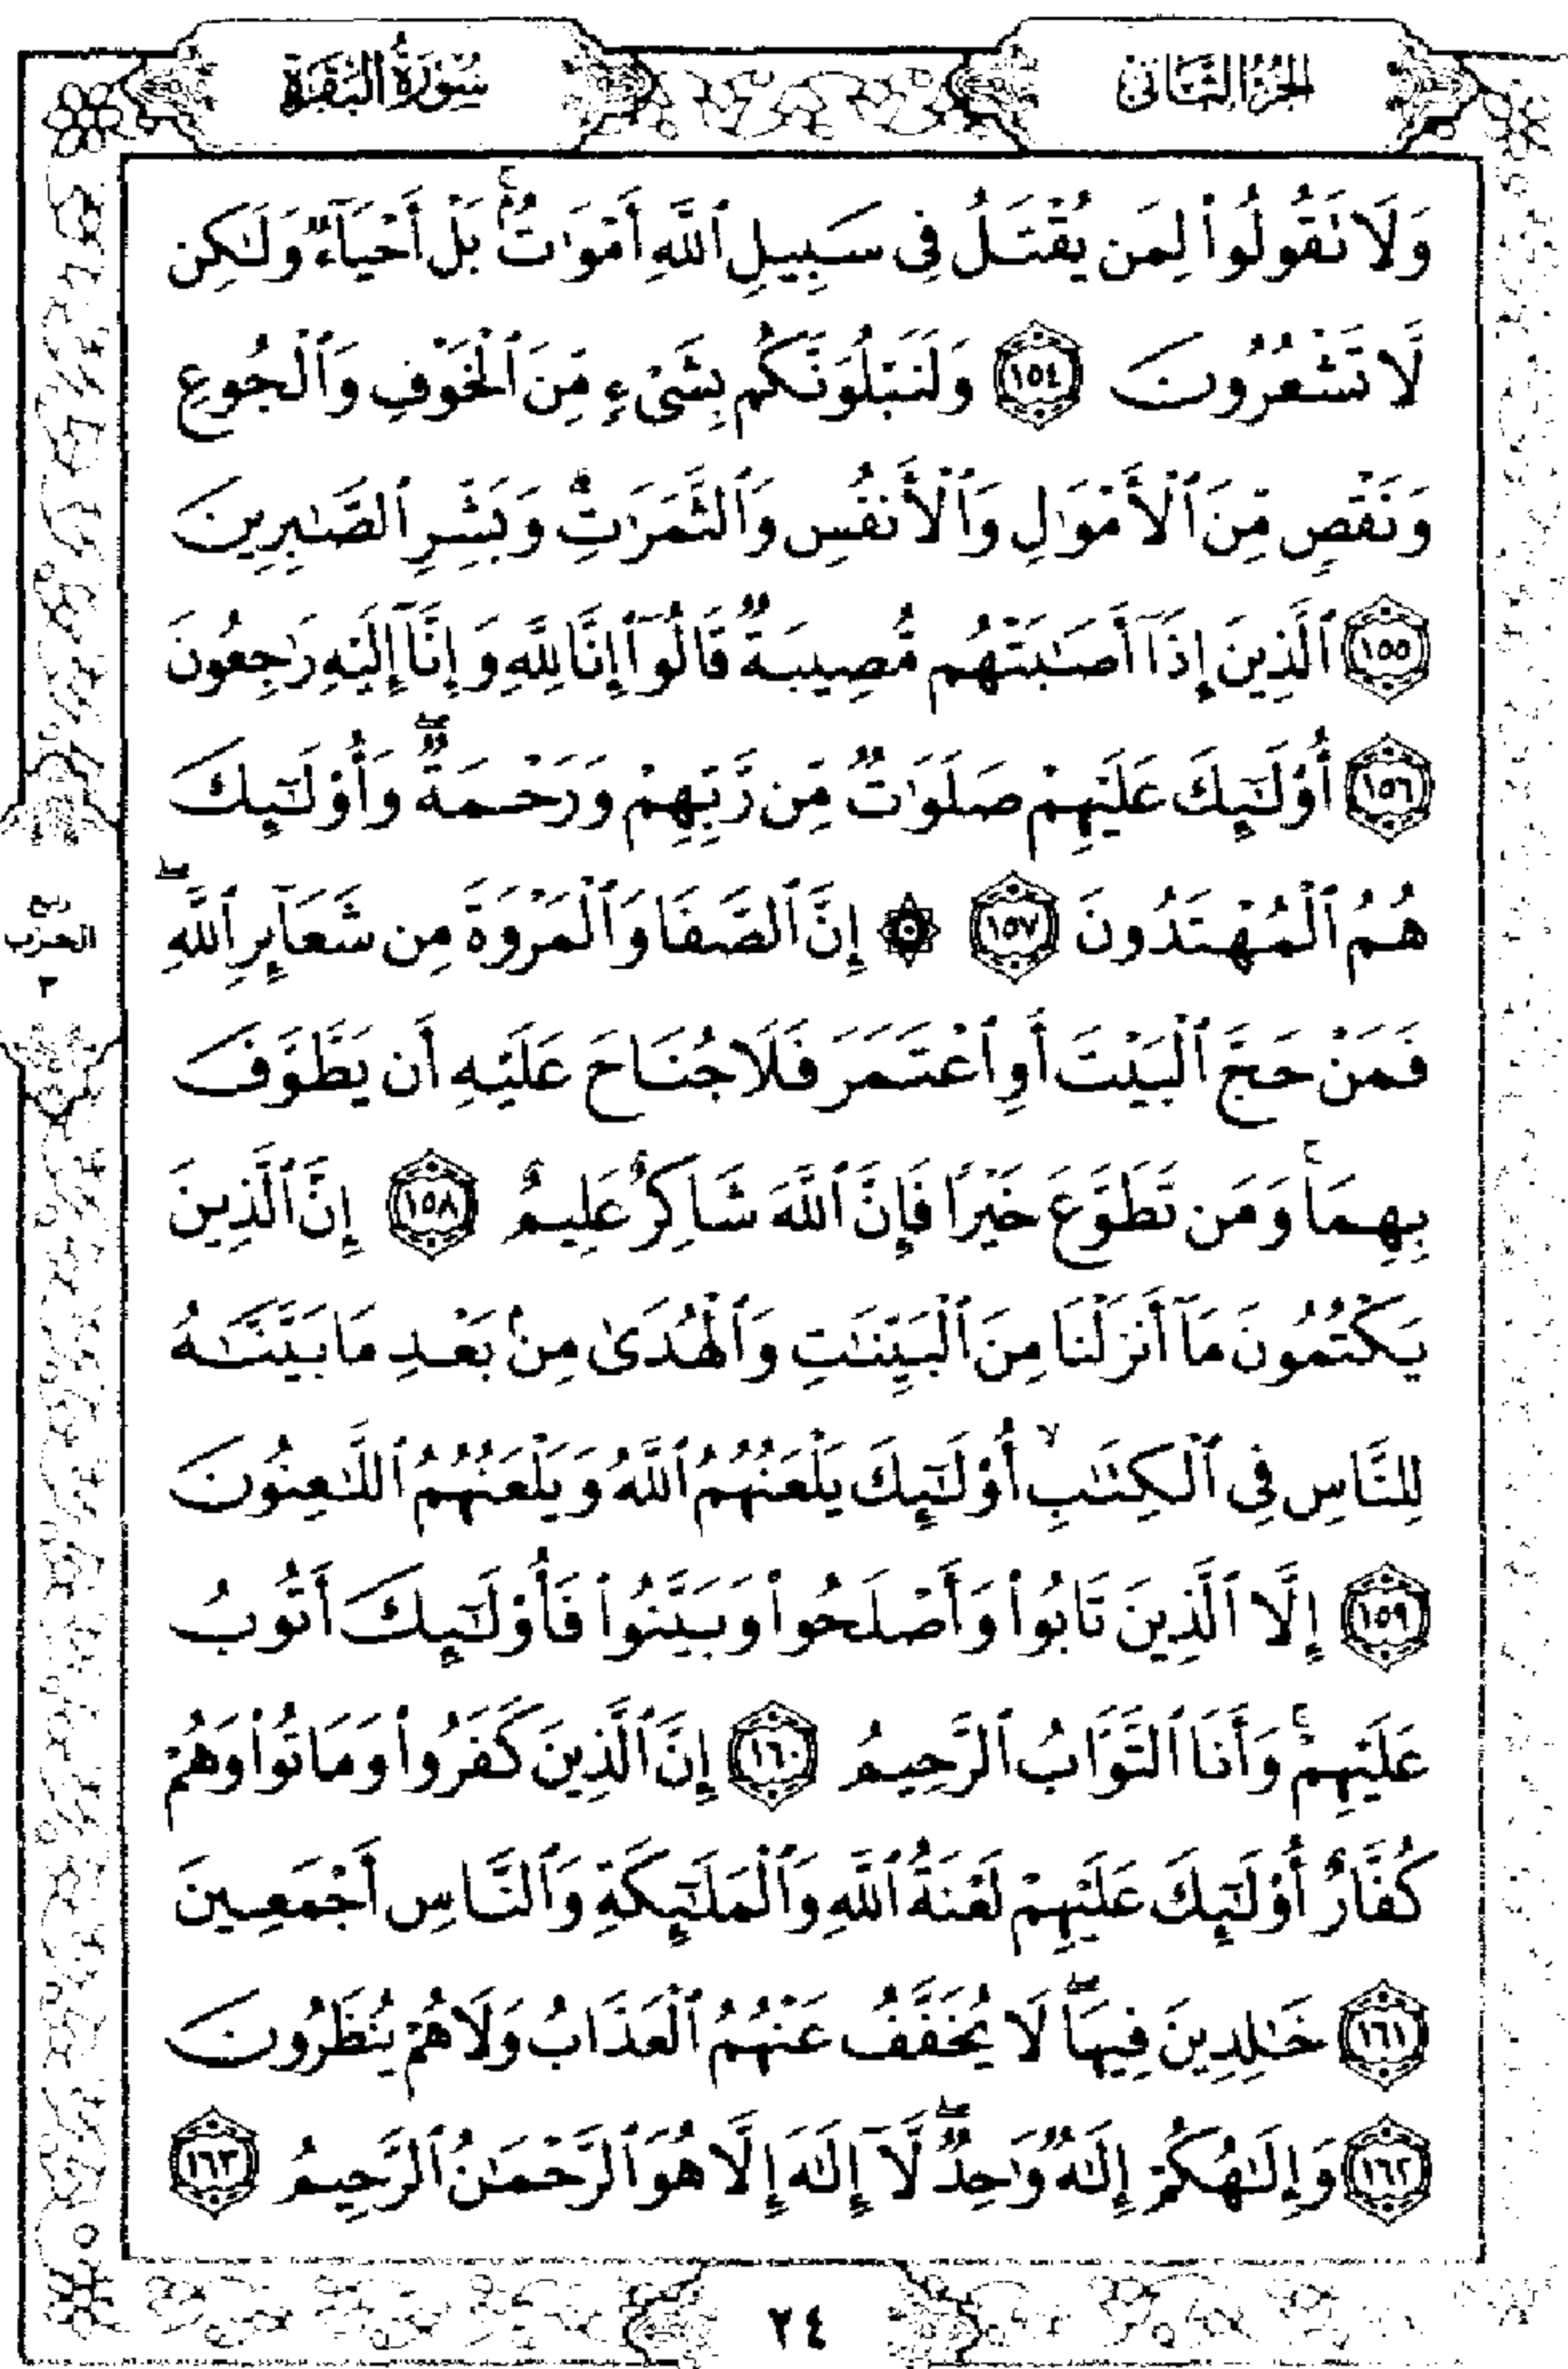 الجزء الثاني
سورة البقرة
وَلَا تَقُولُوا۟ لِمَن يُقْتَلُ فِى سَبِيلِ ٱللَّهِ أَمْوَٰتٌۢ ۚ بَلْ أَحْيَآءٌ وَلَـٰكِن
لَّا تَشْعُرُونَ ١٥٤ وَلَنَبْلُوَنَّكُم بِشَىْءٍ مِّنَ ٱلْخَوْفِ وَٱلْجُوعِ
وَنَقْصٍ مِّنَ ٱلْأَمْوَٰلِ وَٱلْأَنفُسِ وَٱلثَّمَرَٰتِ ۗ وَبَشِّرِ ٱلصَّـٰبِرِينَ
١٥٥ ٱلَّذِينَ إِذَآ أَصَـٰبَتْهُم مُّصِيبَةٌ قَالُوٓا۟ إِنَّا لِلَّهِ وَإِنَّآ إِلَيْهِ رَٰجِعُونَ
١٥٦ أُو۟لَـٰٓئِكَ عَلَيْهِمْ صَلَوَٰتٌ مِّن رَّبِّهِمْ وَرَحْمَةٌ ۖ وَأُو۟لَـٰٓئِكَ
هُمُ ٱلْمُهْتَدُونَ ١٥٧ ۞ إِنَّ ٱلصَّفَا وَٱلْمَرْوَةَ مِن شَعَآئِرِ ٱللَّهِ ۖ
الحزب
٣
فَمَنْ حَجَّ ٱلْبَيْتَ أَوِ ٱعْتَمَرَ فَلَا جُنَاحَ عَلَيْهِ أَن يَطَّوَّفَ
بِهِمَا ۚ وَمَن تَطَوَّعَ خَيْرًا فَإِنَّ ٱللَّهَ شَاكِرٌ عَلِيمٌ ١٥٨ إِنَّ ٱلَّذِينَ
يَكْتُمُونَ مَآ أَنزَلْنَا مِنَ ٱلْبَيِّنَـٰتِ وَٱلْهُدَىٰ مِنۢ بَعْدِ مَا بَيَّنَّـٰهُ
لِلنَّاسِ فِى ٱلْكِتَـٰبِ ۙ أُو۟لَـٰٓئِكَ يَلْعَنُهُمُ ٱللَّهُ وَيَلْعَنُهُمُ ٱللَّـٰعِنُونَ
١٥٩ إِلَّا ٱلَّذِينَ تَابُوا۟ وَأَصْلَحُوا۟ وَبَيَّنُوا۟ فَأُو۟لَـٰٓئِكَ أَتُوبُ
عَلَيْهِمْ ۚ وَأَنَا ٱلتَّوَّابُ ٱلرَّحِيمُ ١٦٠ إِنَّ ٱلَّذِينَ كَفَرُوا۟ وَمَاتُوا۟ وَهُمْ
كُفَّارٌ أُو۟لَـٰٓئِكَ عَلَيْهِمْ لَعْنَةُ ٱللَّهِ وَٱلْمَلَـٰٓئِكَةِ وَٱلنَّاسِ أَجْمَعِينَ
١٦١ خَـٰلِدِينَ فِيهَا ۖ لَا يُخَفَّفُ عَنْهُمُ ٱلْعَذَابُ وَلَا هُمْ يُنظَرُونَ
١٦٢ وَإِلَـٰهُكُمْ إِلَـٰهٌ وَٰحِدٌ ۖ لَّآ إِلَـٰهَ إِلَّا هُوَ ٱلرَّحْمَـٰنُ ٱلرَّحِيمُ ١٦٣
٢٤